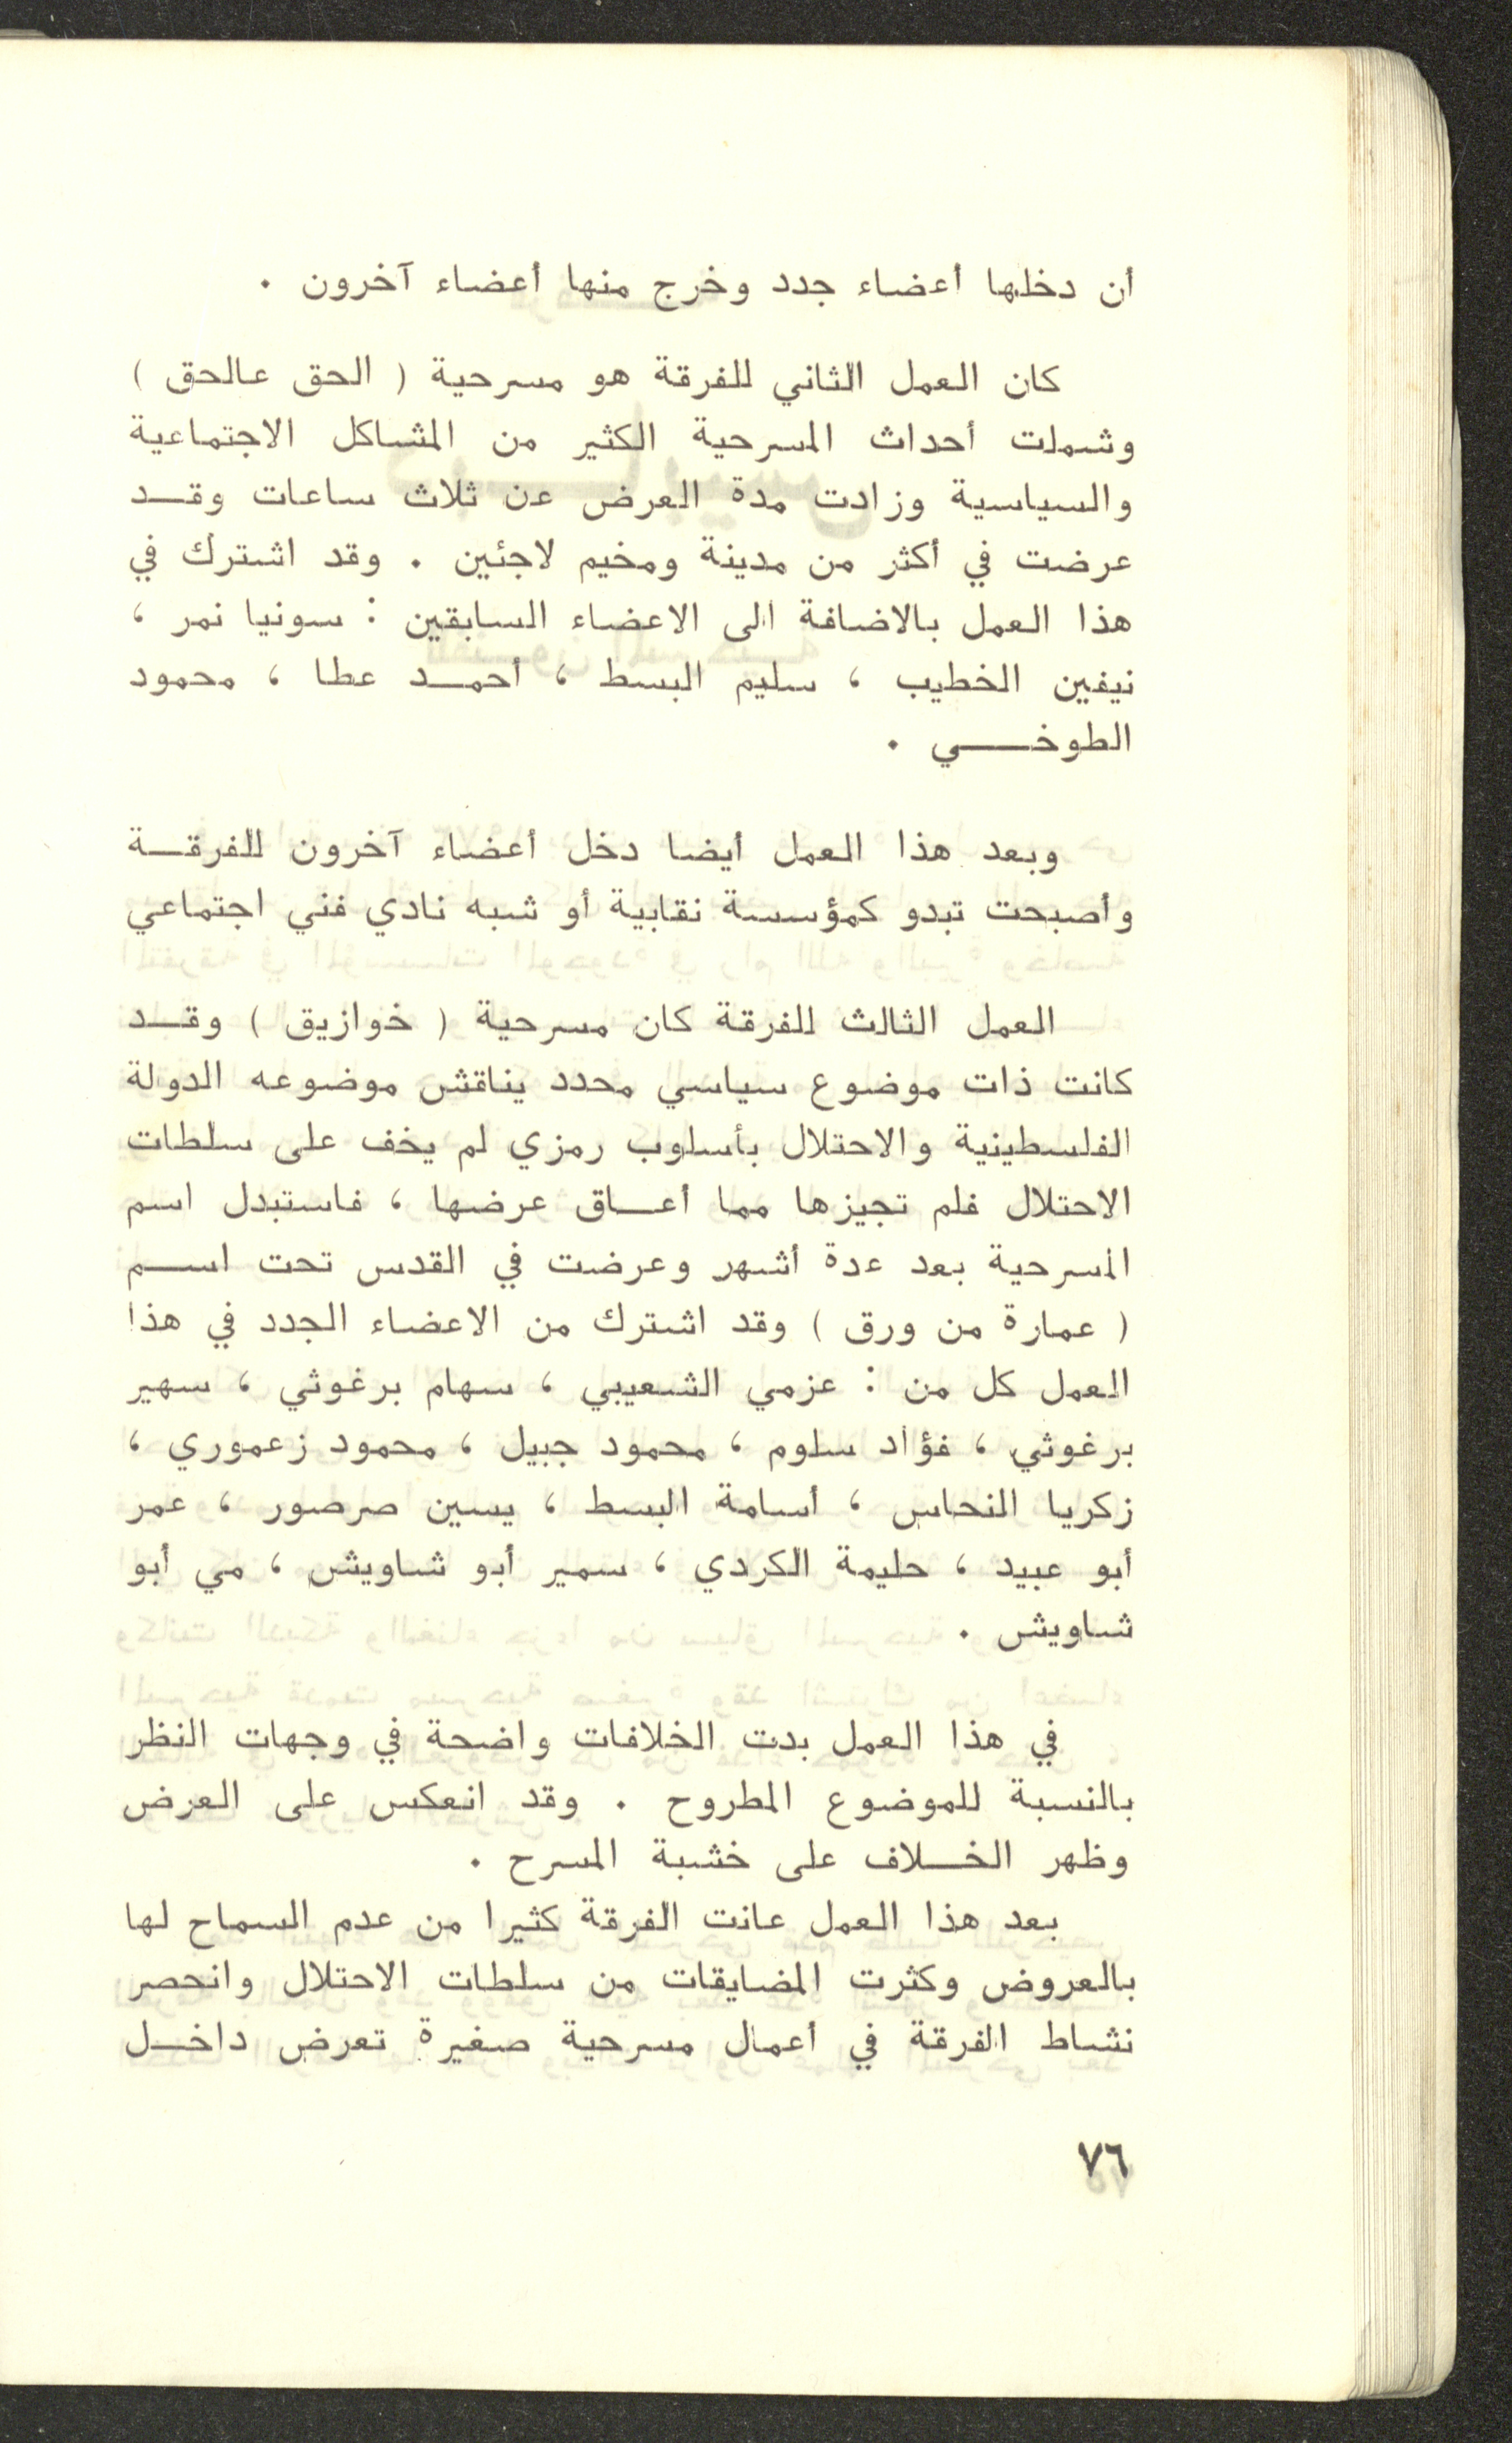 أن دخلها أعضاء جدد وخرج منها أعضاء آخرون .
كان العمل الثاني للفرقة هو مسرحية ( الحق عالحق )
وشملت أحداث المسرحية الكثير من المشاكل الاجتماعية
والسياسية وزادت مدة العرض عن ثلاث ساعات وقد
عرضت في أكثر من مدينة ومخيم لاجئين . وقد اشترك في
هذا العمل بالاضافة الى الاعضاء السابقين : سونيا نمر ،
نيفين الخطيب ، سليم البسط ، أحمد عطا ، محمود
الطوخي .
وبعد هذا العمل أيضا دخل أعضاء آخرون للفرقة
وأصبحت تبدو كمؤسسة نقابية أو شبه نادي فني اجتماعي
العمل الثالث للفرقة كان مسرحية ( خوازيق ) وقد
كانت ذات موضوع سياسي محدد يناقش موضوعه الدولة
الفلسطينية والاحتلال بأسلوب رمزي لم يخف على سلطات
الاحتلال فلم تجيزها مما أعاق عرضها ، فاستبدل اسم
المسرحية بعد عدة أشهر وعرضت في القدس تحت اسم
( عمارة من ورق ) وقد اشترك من الاعضاء الجدد في هذا
العمل كل من : عزمي الشعيبي ، سهام برغوثي ، سهير
برغوثي ، فؤاد سلوم ، محمود جبيل ، محمود زعموري ،
زكريا النحاس ، أسامة البسط ، يسين صرصور ، عمر
أبو عبيد ، حليمة الكردي ، سمير أبو شاويش ، مي أبو
شاويش .
في هذا العمل بدت الخلافات واضحة في وجهات النظر
بالنسبة للموضوع المطروح . وقد انعكس على العرض
وظهر الخلاف على خشبة المسرح .
بعد هذا العمل عانت الفرقة كثيرا من عدم السماح لها
بالعروض وكثرت المضايقات من سلطات الاحتلال وانحصر
نشاط الفرقة في أعمال مسرحية صغيرة تعرض داخل
٧٦